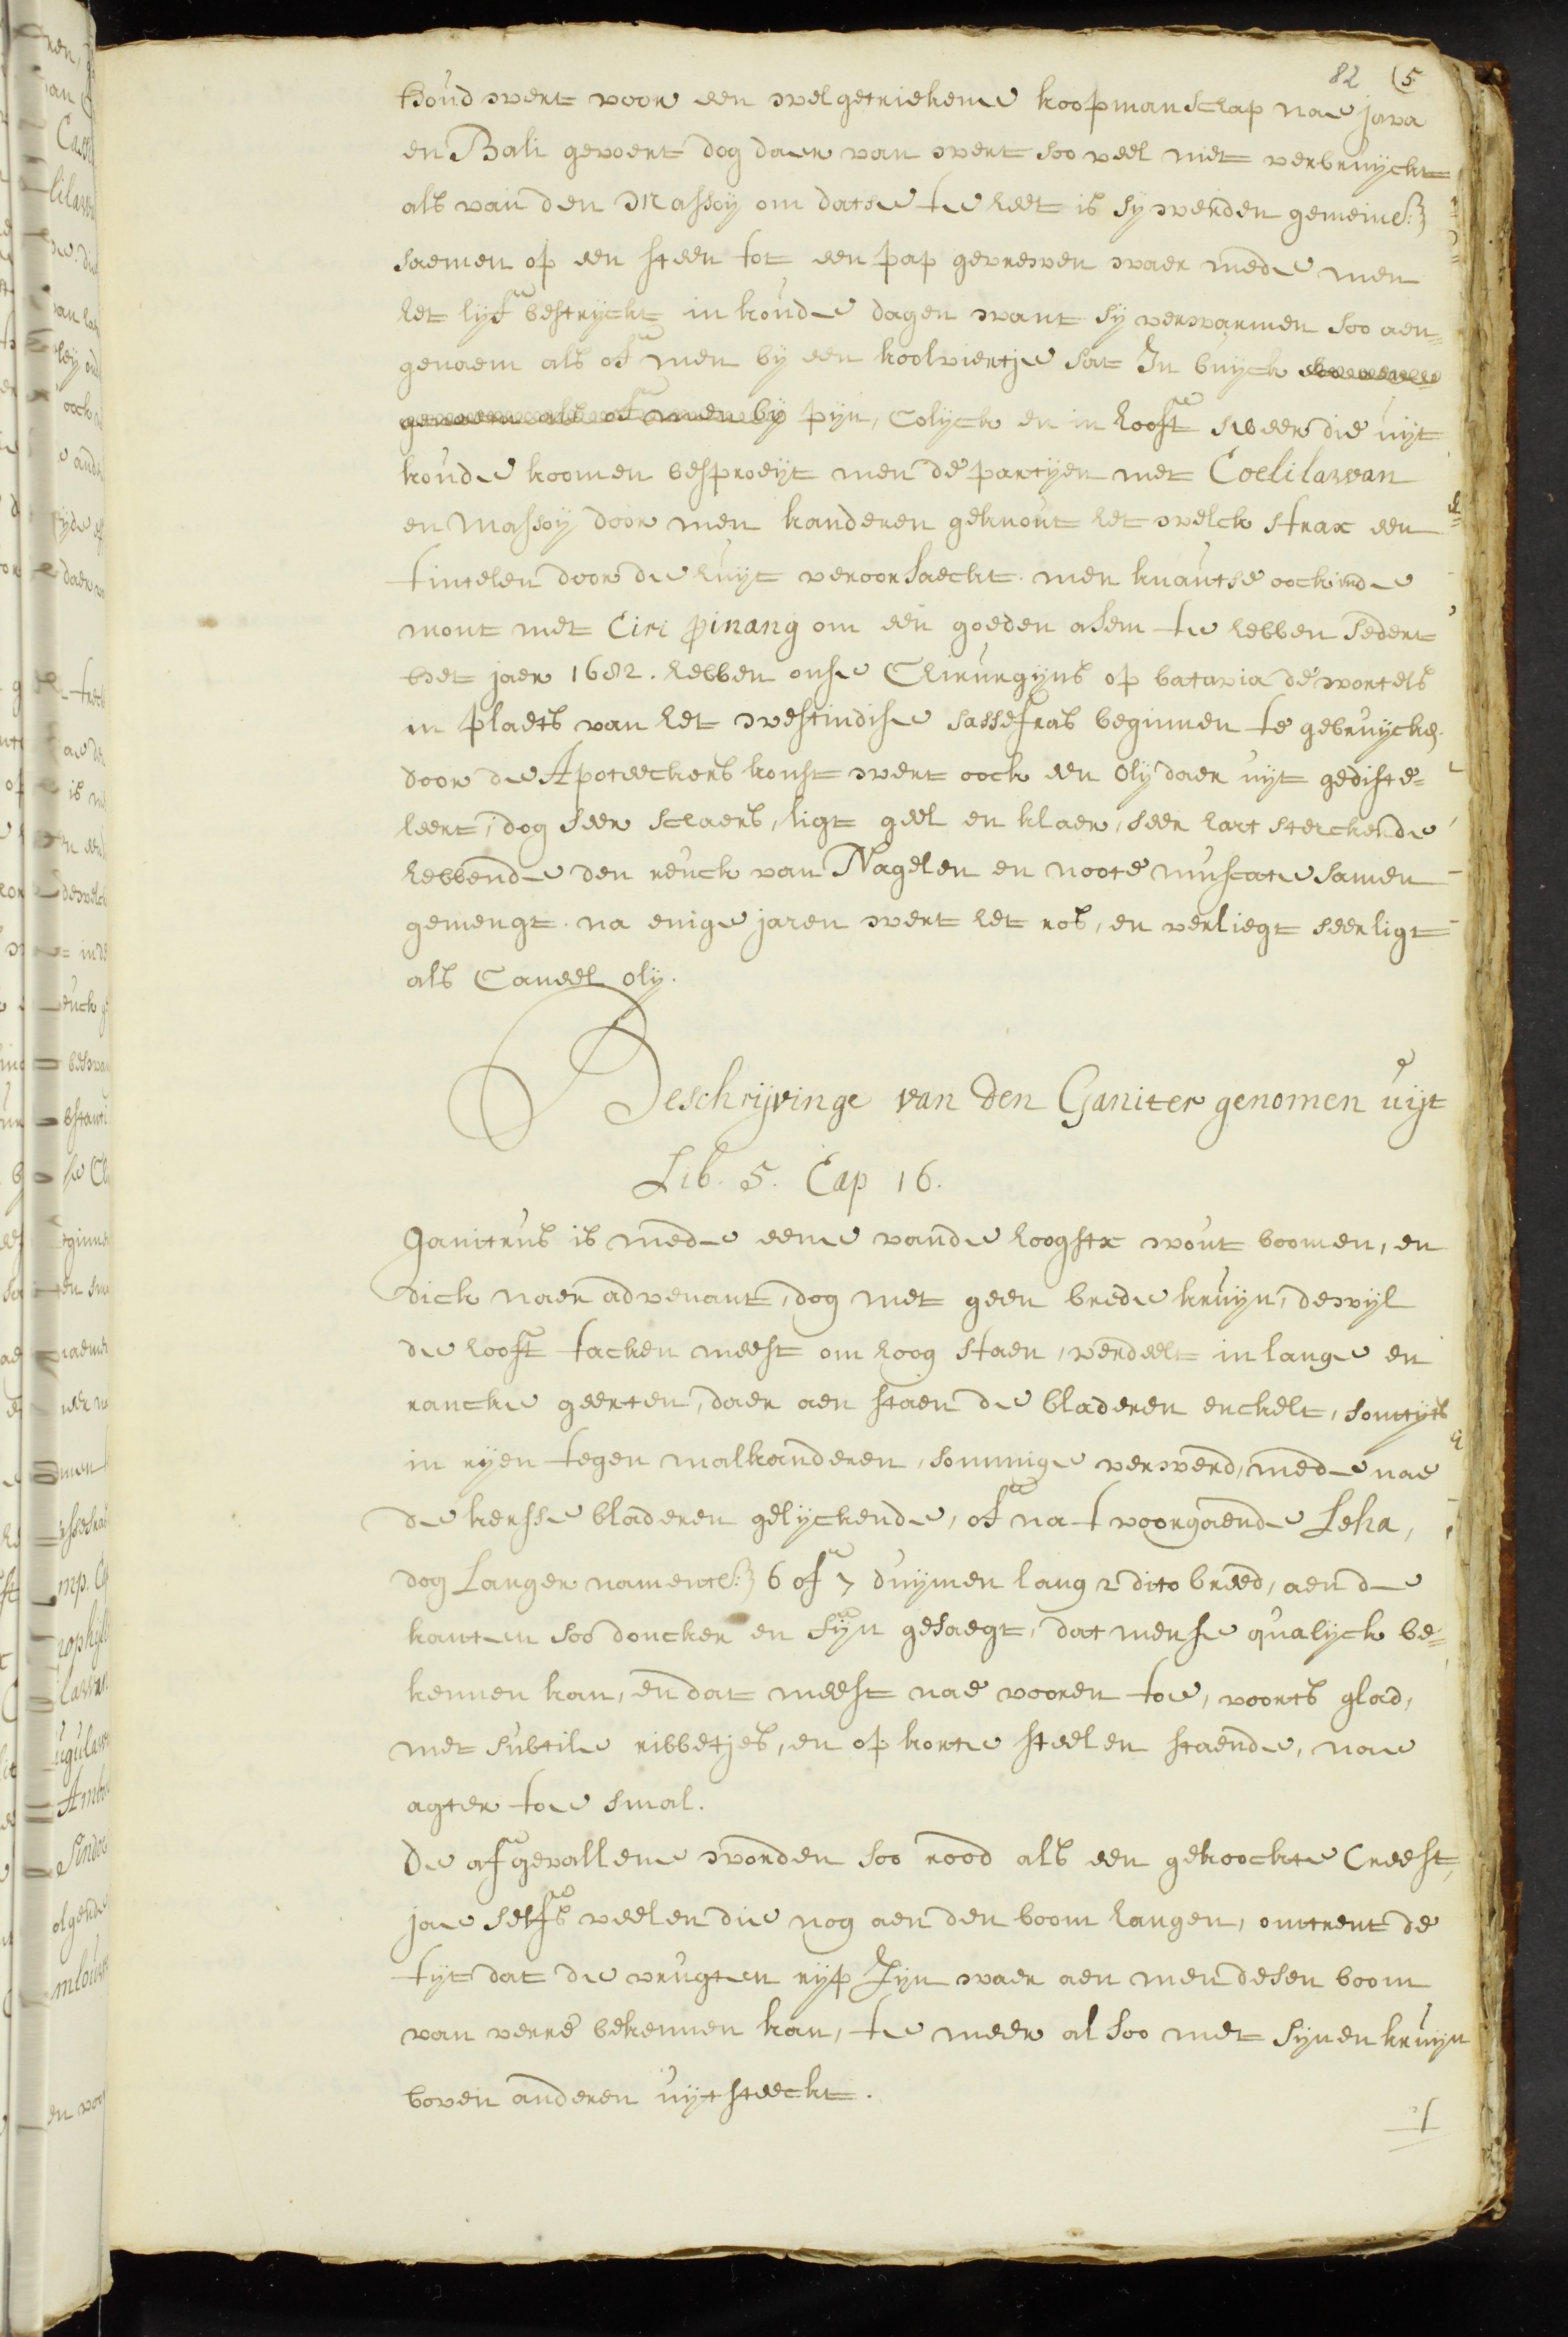 82 (5
Houd wert voor een welgetriekene koopmanschap nae java
en Bali gevoert dog daer van wert soo veel niet verbruyckt
als van den Massoy om datse te heet is sy werden gemeinel:
saemen op een steen tot een pap gevrewen waer mede men
het lyf bestryckt in koude dagen want sy verwarmen soo aen=
genaem als of men by een koolviertje sat In buyck soo aen
genaem als of men by pyn, Colyck en in hooft sweer die uyt
koude koomen besproeyt men de partyen met Coelilawan
en Massoy door men kanderen geknout het welck strax een
tintelen door de huyt veroorsaeckt. men knautse oock inde
mont met Ciri pinang om een goeden asem te hebben sedert
het jaer 1682. hebben onse Chirurgyns op batavia de wortels
in plaets van het westindise sassefras beginnen te gebruycken
door de Apoteckers konst wert oock een Oly daer uyt gediste=
leert, dog seer schaers, ligt geel en klaer, seer hart sterckende
hebbende den reuck van Nagelen en noote muscate samen
gemengt. na enige jaren wert het ros, en verliegt seer ligt
als Caneel oly.
Beschrijvinge van den Ganiter genomen uijt
Lib. 5. Cap 16.
Ganitrus is mede eene vande hoogste wout boomen, en
dick naer advenant, dog met geen brede kruyn, dewyl
de hooft tacken meest om hoog staen, verdeelt in lange en
rancke geerten, daer aen staen de bladeren enckelt, somtyts
in ryen tegen malkanderen, sommige verwerd, mede nae
de kersse bladeren gelyckende, of na t voorgaende Leha,
dog Langer namentl: 6 of 7 duymen lang 2 dito breed, aen de
kanten soo doncker en fyn gesaegt, dat mense qualyck be=
kennen kan, en dat meest nae vooren toe, voorts glad,
met subtile ribbetjes, en op korte steelen staende, nae
agter toe smal.
De afgevallene worden soo rood als een gekoockte Creeft,
jae selfs veelen die nog aen den boom hangen, omtrent de
tyt dat de vrugten ryp Zyn waer aen men desen boom
van verre bekennen kan, te meer al soo met synen kruyn
boven anderen uytsteeckt.